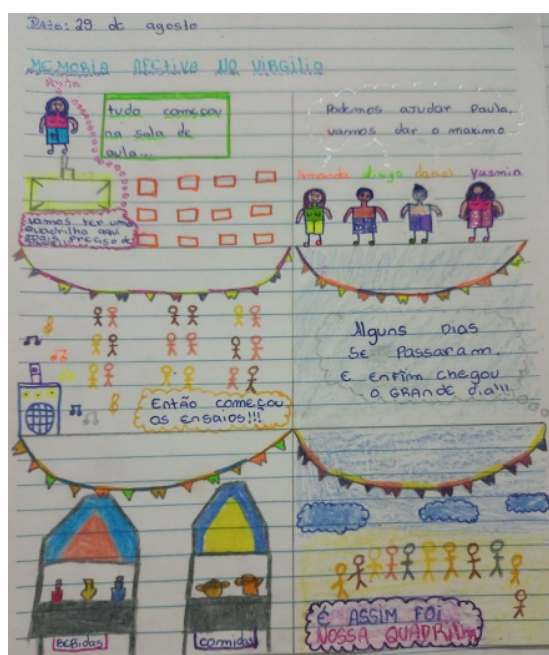 Data: 29 de agosto
MEMORIA AFECTIVA NO VIRGILIO
Paula
tudo começou
na sala de
aula...
vamos ter uma
quadrilha aqui
preciso de
Podemos ajudar Paula,
vamos dar o maximo
Amanda diego daniel Yasmin
Então começou
os ensaios!!!
Alguns Dias
Se Passaram.
E Enfim chegou
o GRANDE dia!!!
BEBidas
comidas
E ASSIM FOI
NOSSA QUADRILHA